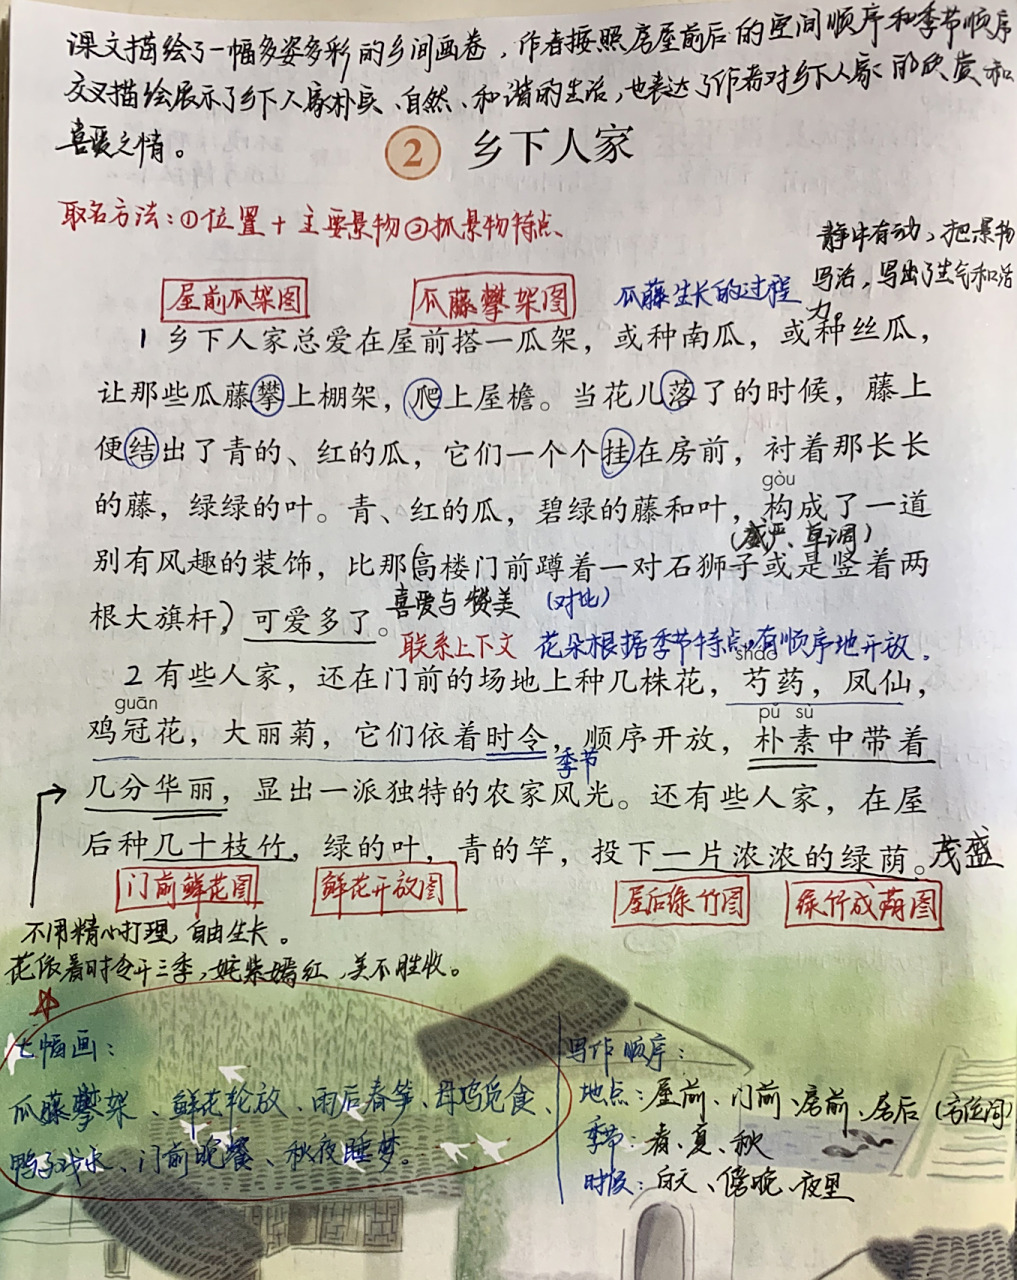 课文描绘了一幅多姿多彩的乡间画卷，作者按照房屋前后的空间顺序和季节顺序
交叉描绘展示了乡下人家朴实、自然、和谐的生活，也表达了作者对乡下人家的欣赏和
喜爱之情。
2 乡下人家
取名方法：①位置+主要景物②抓景物特点
静中有动，把景物
写活，写出了生气和活
力。
屋前瓜架图 瓜藤攀架图 瓜藤生长的过程
1 乡下人家总爱在屋前搭一瓜架，或种南瓜，或种丝瓜，
让那些瓜藤攀上棚架，爬上屋檐。当花儿落了的时候，藤上
便结出了青的、红的瓜，它们一个个挂在房前，衬着那长长
gòu
的藤，绿绿的叶。青、红的瓜，碧绿的藤和叶，构成了一道
（威严、单调）
别有风趣的装饰，比那高楼门前蹲着一对石狮子或是竖着两
根大旗杆，可爱多了。
喜爱与赞美 （对比）
联系上下文 花朵根据季节特点，有顺序地开放。
sháo
2 有些人家，还在门前的场地上种几株花，芍药，凤仙，
guān pǔ sù
鸡冠花，大丽菊，它们依着时令，顺序开放，朴素中带着
季节
几分华丽，显出一派独特的农家风光。还有些人家，在屋
后种几十枝竹，绿的叶，青的竿，投下一片浓浓的绿荫。茂盛
门前鲜花图 鲜花开放图 屋后绿竹图 绿竹成荫图
不用精心打理，自由生长。
花依着时令开三季，姹紫嫣红，美不胜收。
七幅画：
瓜藤攀架、鲜花轮放、雨后春笋、母鸡觅食、
鸭子戏水、门前晚餐、秋夜睡梦。
写作顺序：
地点：屋前、门前、房前、屋后（方位词）
季节：春、夏、秋
时候：白天、傍晚、夜里